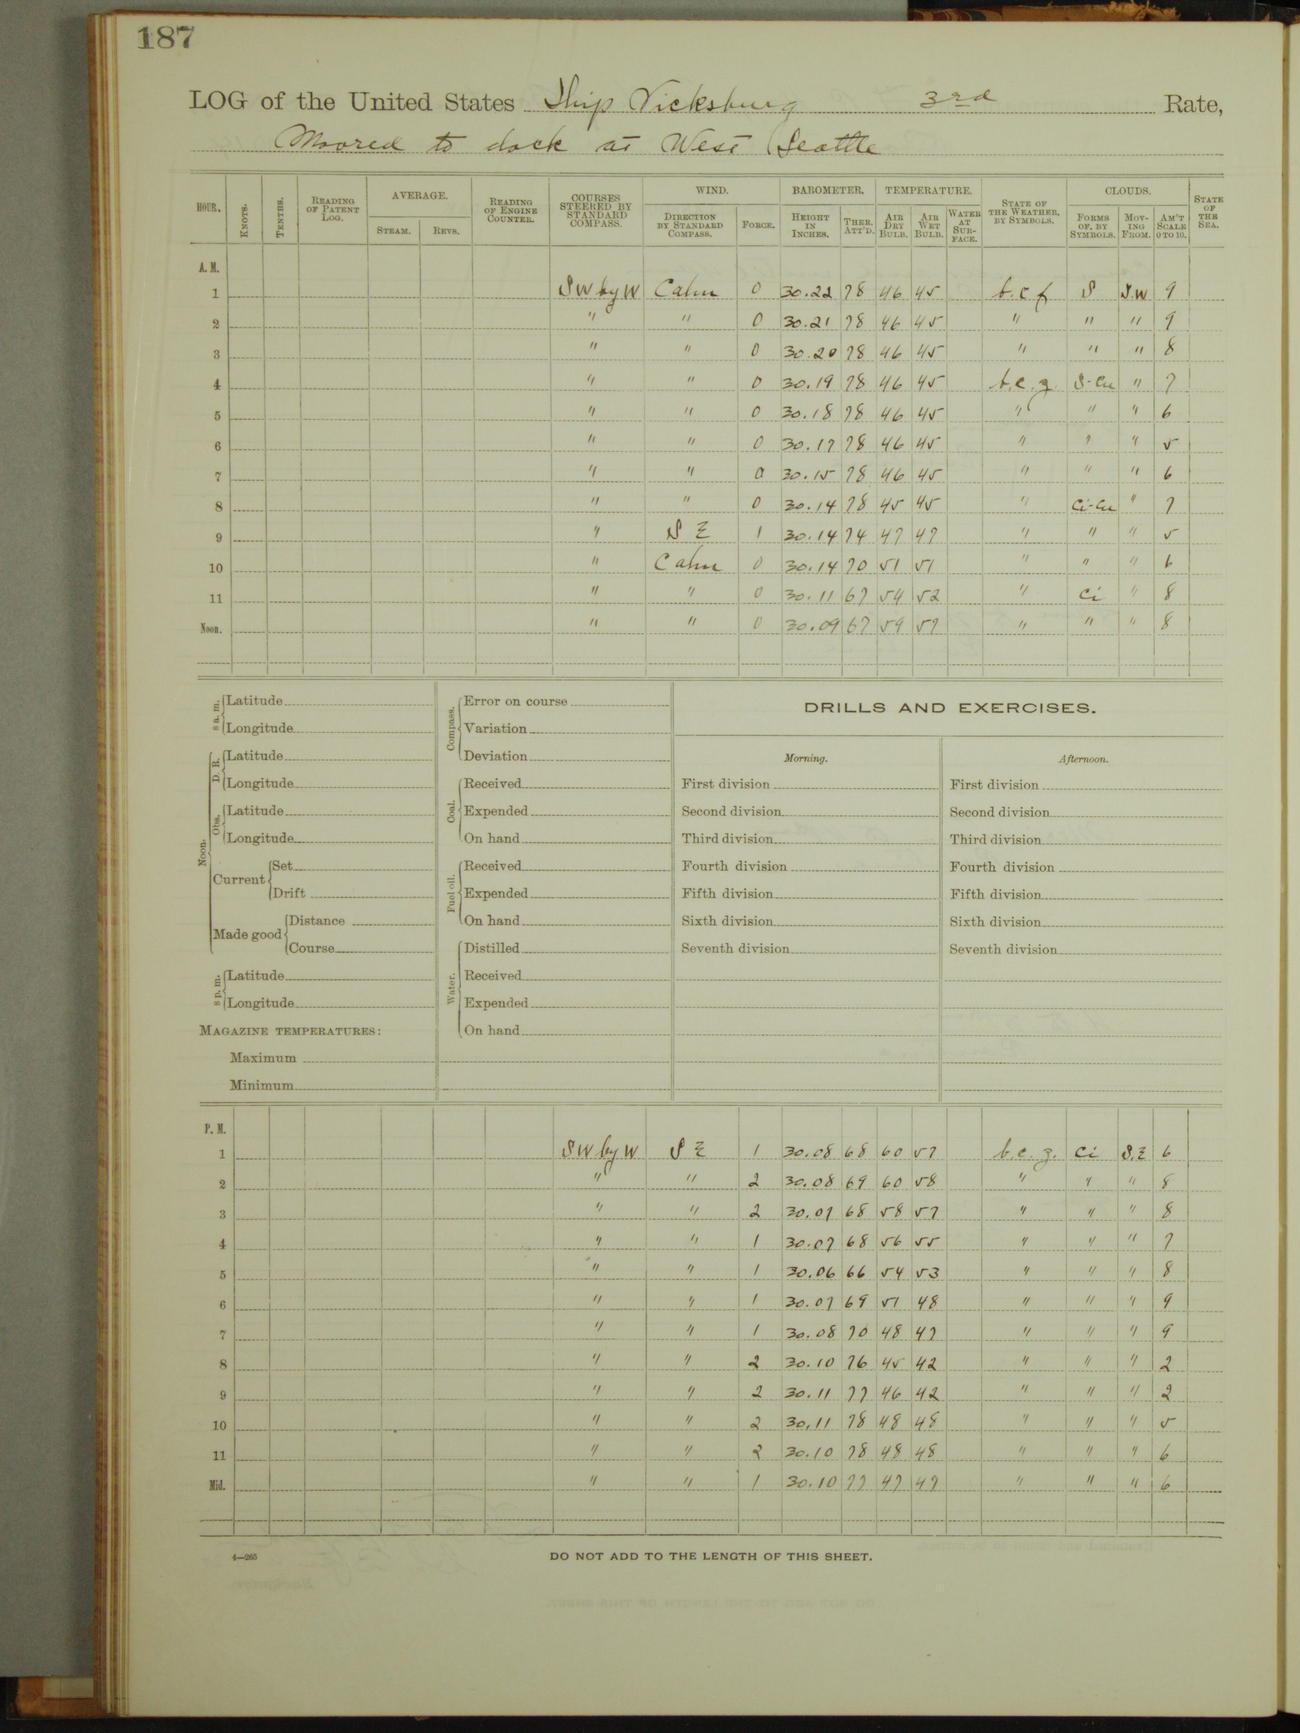 187
LOG of the United States Ship Vicksburg 3rd Rate,
Moored to dock at West Seattle
HOUR. KNOTS. TENTHS. READING OF PATENT LOG. AVERAGE. STEAM. REVS. READING OF ENGINE COUNTER. COURSES STEERED BY STANDARD COMPASS. WIND. DIRECTION BY STANDARD COMPASS. FORCE. BAROMETER. HEIGHT IN INCHES. THER. ATT'D. TEMPERATURE. AIR DRY BULB. AIR WET BULB. WATER AT SURFACE. STATE OF THE WEATHER, BY SYMBOLS. CLOUDS. FORMS OF, BY SYMBOLS. MOVING FROM. AM'T SCALE 0 TO 10. STATE OF THE SEA.
A. M.
1 SW by W Calm 0 30.22 78 46 45 b.c f S S.W 9
2 " " 0 30.21 78 46 45 " " " 9
3 " " 0 30.20 78 46 45 " " " 8
4 " " 0 30.19 78 46 45 b.c.z. S-Cu " 7
5 " " 0 30.18 78 46 45 " " " 6
6 " " 0 30.17 78 46 45 " " " 5
7 " " 0 30.15 78 46 45 " " " 6
8 " " 0 30.14 78 45 45 " Ci-Cu " 7
9 " S E 1 30.14 74 47 47 " " " 5
10 " Calm 0 30.14 70 51 51 " " " 6
11 " " 0 30.11 67 54 52 " Ci " 8
Noon. " " 0 30.09 67 59 57 " " " 8
8 a. m. Latitude
Longitude
Noon. D. R. Latitude
Longitude
Obs. Latitude
Longitude
Current Set
Drift
Made good Distance
Course
8 p. m. Latitude
Longitude
MAGAZINE TEMPERATURES:
Maximum
Minimum
Compass. Error on course
Variation
Deviation
Coal. Received
Expended
On hand
Fuel oil. Received
Expended
On hand
Water. Distilled
Received
Expended
On hand
DRILLS AND EXERCISES.
Morning. Afternoon.
First division First division
Second division Second division
Third division Third division
Fourth division Fourth division
Fifth division Fifth division
Sixth division Sixth division
Seventh division Seventh division
P. M.
1 SW by W S E 1 30.08 68 60 57 b.c. z. Ci S.E 6
2 " " 2 30.08 69 60 58 " " " 8
3 " " 2 30.07 68 58 57 " " " 8
4 " " 1 30.07 68 56 55 " " " 7
5 " " 1 30.06 66 54 53 " " " 8
6 " " 1 30.07 69 51 48 " " " 9
7 " " 1 30.08 70 48 47 " " " 9
8 " " 2 30.10 76 45 42 " " " 2
9 " " 2 30.11 77 46 42 " " " 2
10 " " 2 30.11 78 48 48 " " " 5
11 " " 2 30.10 78 48 48 " " " 6
Mid. " " 1 30.10 77 47 47 " " " 6
4—265
DO NOT ADD TO THE LENGTH OF THIS SHEET.